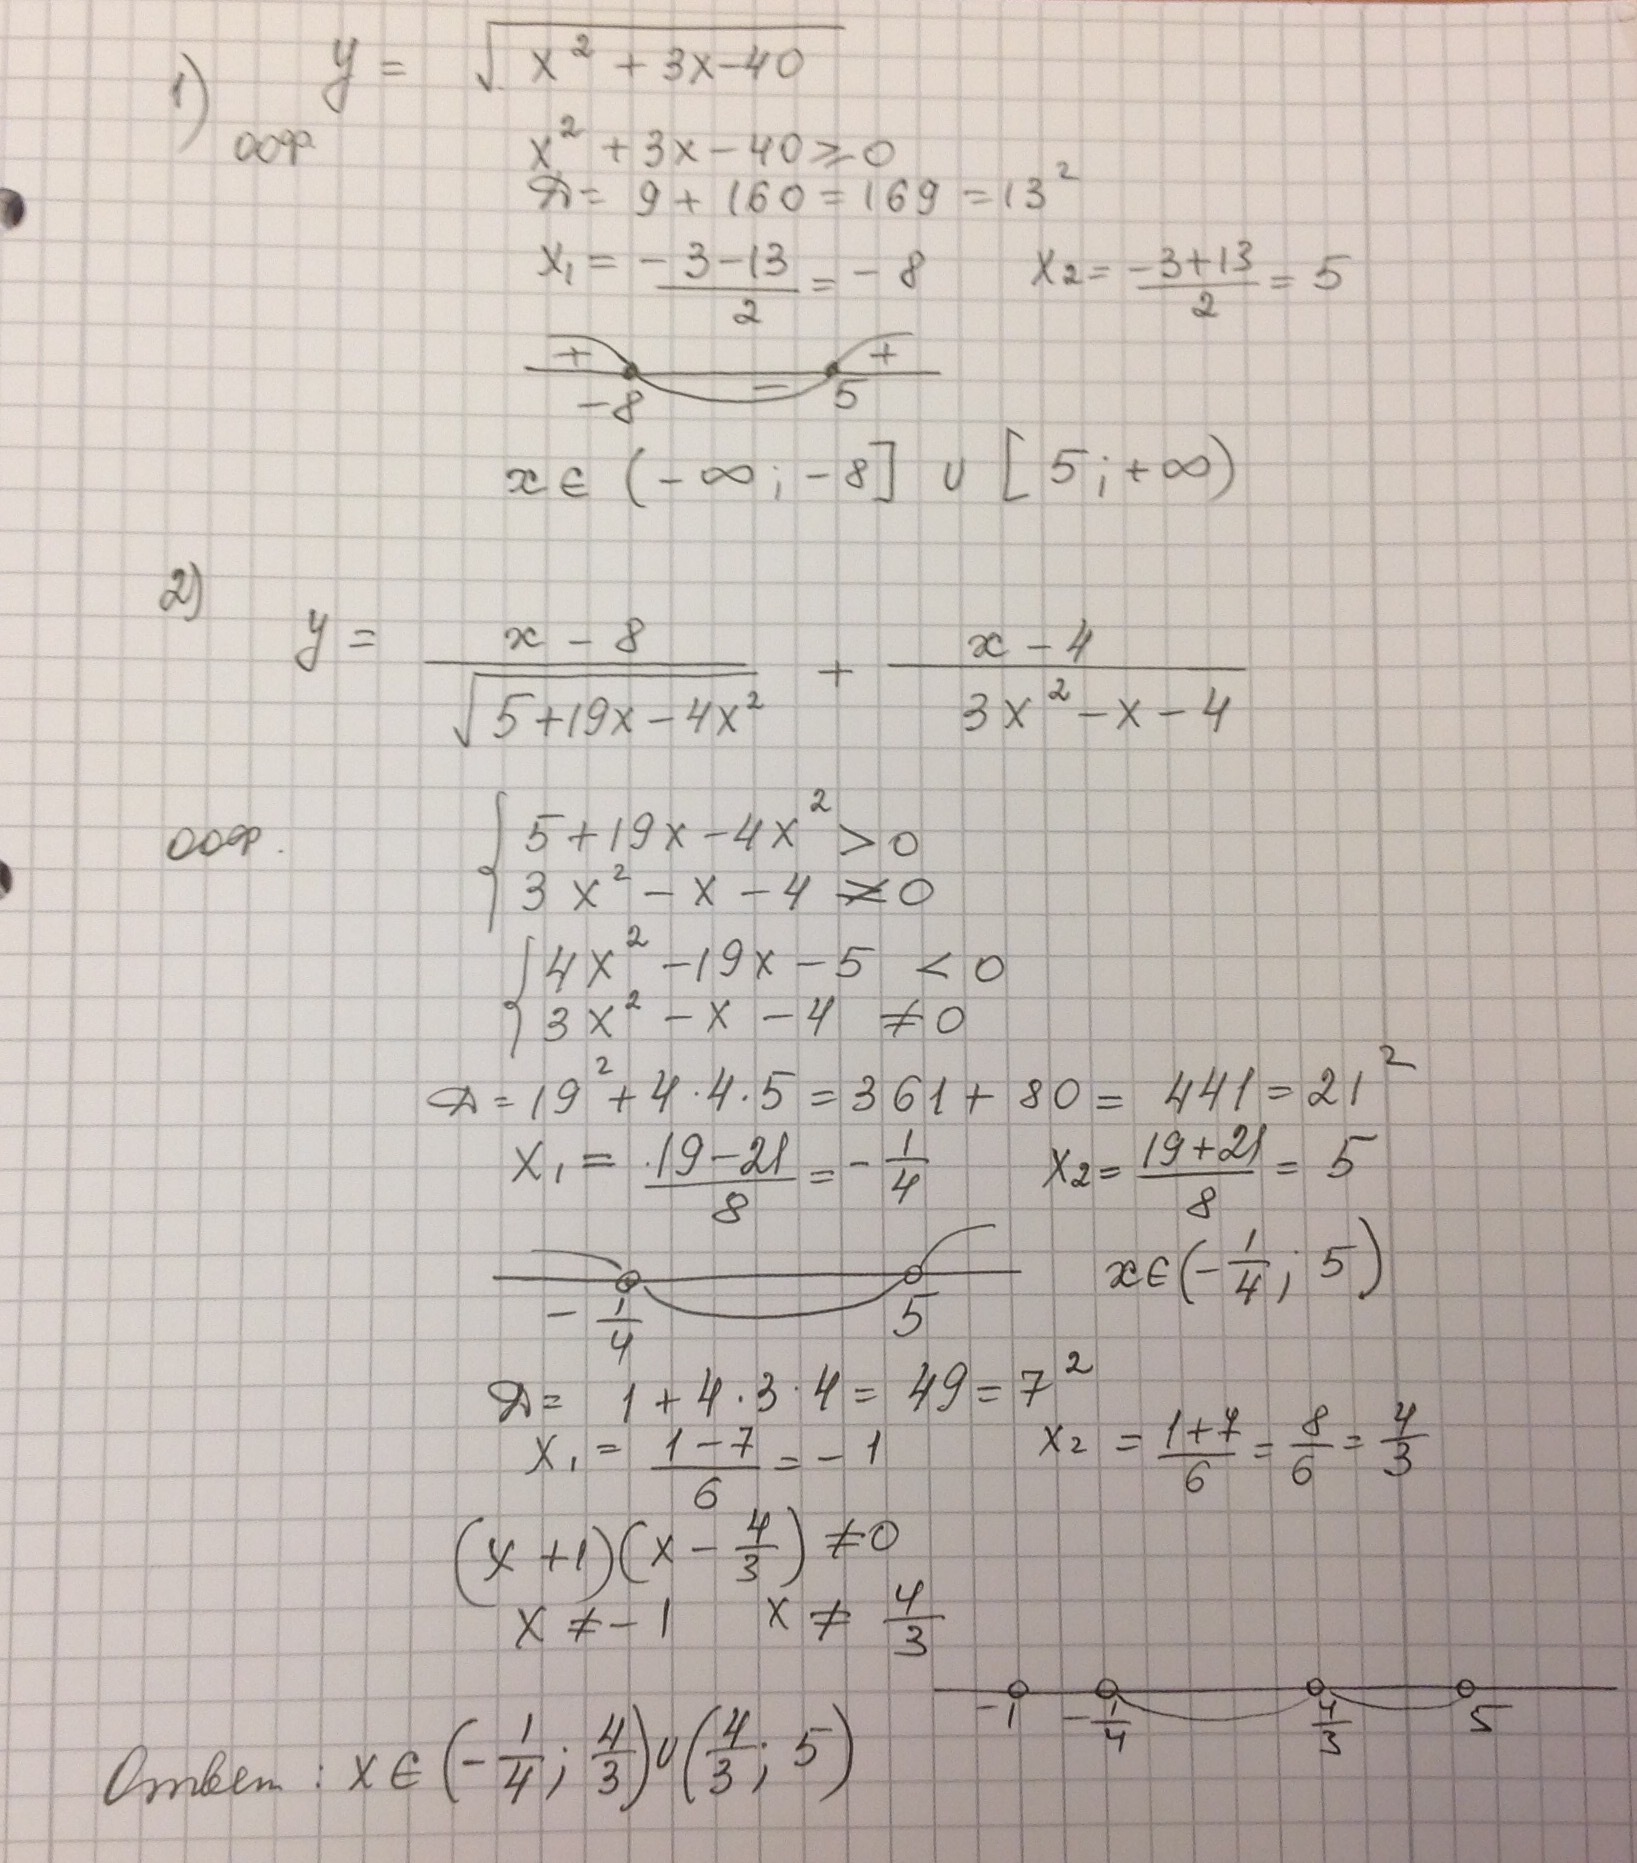 1) y = √(x² + 3x - 40)
ООФ. x² + 3x - 40 ⩾ 0
Д = 9 + 160 = 169 = 13²
x₁ = (-3-13)/2 = -8 x₂ = (-3+13)/2 = 5
+ - +
-8 5
x ∈ (-∞; -8] ∪ [5; +∞)
2) y = (x - 8)/√(5+19x-4x²) + (x - 4)/(3x² - x - 4)
ООФ. { 5+19x-4x² > 0
3x² - x - 4 ≠ 0
{ 4x² - 19x - 5 < 0
3x² - x - 4 ≠ 0
Д = 19² + 4·4·5 = 361 + 80 = 441 = 21²
x₁ = (19-21)/8 = -1/4 x₂ = (19+21)/8 = 5
-1/4 5 x ∈ (-1/4; 5)
Д = 1 + 4·3·4 = 49 = 7²
x₁ = (1-7)/6 = -1 x₂ = (1+7)/6 = 8/6 = 4/3
(x + 1)(x - 4/3) ≠ 0
x ≠ -1 x ≠ 4/3
-1 -1/4 4/3 5
Ответ: x ∈ (-1/4; 4/3) ∪ (4/3; 5)